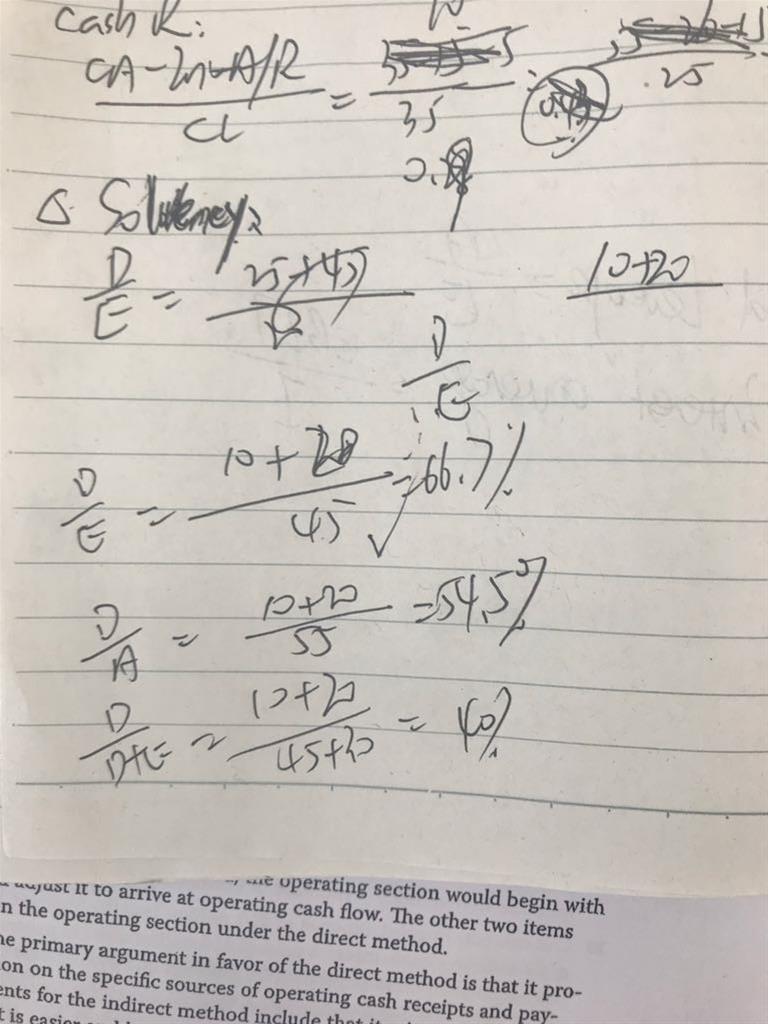 Cash R:
CA-Inv-A/R
CL
=
35
.25
0.
Δ Solvency:
D/E = 25+45
10+20
D/E
D/E = 10+20/45 = 66.7%
D/A = 10+20/55 = 54.5%
D/D+E = 10+20/45+30 = 40%
adjust it to arrive at operating cash flow. The other two items
n the operating section under the direct method.
he primary argument in favor of the direct method is that it pro-
on on the specific sources of operating cash receipts and pay-
ents for the indirect method include that
t is easier